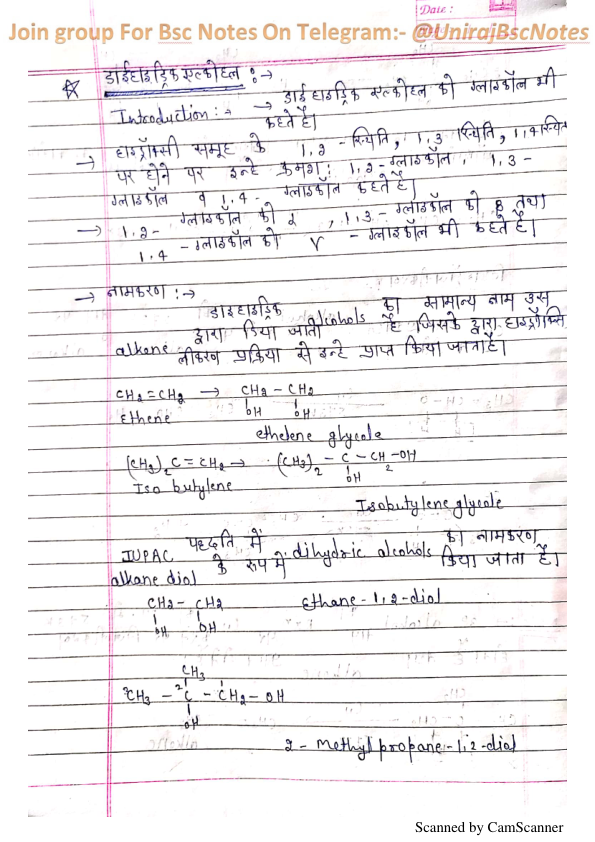 Date:
Join group For Bsc Notes On Telegram:- @UnirajBscNotes
डाईहाइड्रिक एल्कोहल :→
Introduction :→ → डाई हाइड्रिक एल्कोहल को ग्लाइकॉल भी
कहते हैं।
→ हाइड्रॉक्सी समूह के 1,2 - स्थिति, 1,3 स्थिति, 1,4 स्थिति
पर होने पर इन्हे क्रमश: 1,2 - ग्लाइकॉल, 1,3 -
ग्लाइकॉल व 1,4 - ग्लाइकॉल कहते है।
→ 1,2 - ग्लाइकॉल को α, 1,3 - ग्लाइकॉल को β तथा
1,4 - ग्लाइकॉल को γ - ग्लाइकॉल भी कहते हैं।
→ नामकरण :→
डाइहाइड्रिक alcohols का सामान्य नाम उस
alkane द्वारा किया जाता है जिसके द्वारा हाइड्रॉक्सि
लीकरण प्रक्रिया से इन्हे प्राप्त किया जाता है।
CH2=CH2 → CH2 - CH2
OH OH
Ethene
ethelene glycole
(CH3)2 C = CH2 → (CH3)2 - C - CH2 - OH
OH
Iso butylene
Isobutylene glycole
IUPAC पद्दति में dihydric alcohols का नामकरण
alkane diol के रूप में किया जाता है।
CH2 - CH2 Ethane-1,2-diol
OH OH
CH3
3CH3 - 2C - 1CH2 - OH
OH
2 - Methyl propane-1,2-diol
Scanned by CamScanner